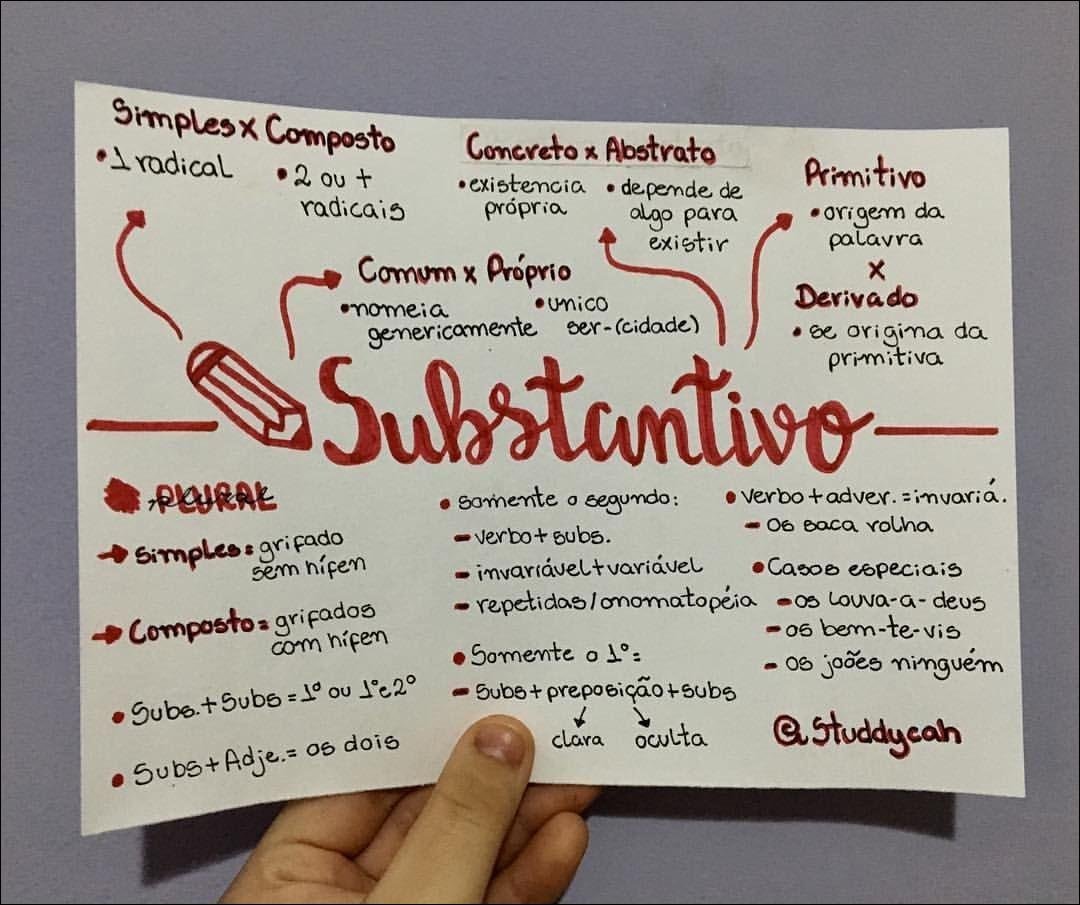 Simples x Composto
•1 radical
•2 ou +
radicais
Concreto x Abstrato
•existencia
própria
•depende de
algo para
existir
Primitivo
•origem da
palavra
x
Derivado
•se origina da
primitiva
Comum x Próprio
•nomeia
genericamente
•unico
ser-(cidade)
Substantivo
PLURAL
→ Simples = grifado
sem hífen
→ Composto = grifados
com hífen
• Subs. + Subs = 1º ou 1º e 2º
• Subs + Adje. = os dois
• somente o segundo:
- verbo + subs.
- invariável + variável
- repetidas/onomatopéia
• Somente o 1º:
- Subs + preposição + subs
clara oculta
• verbo + adver. = invariá.
- os saca rolha
• Casos especiais
- os louva-a-deus
- os bem-te-vis
- os joões ninguém
@Studdycah